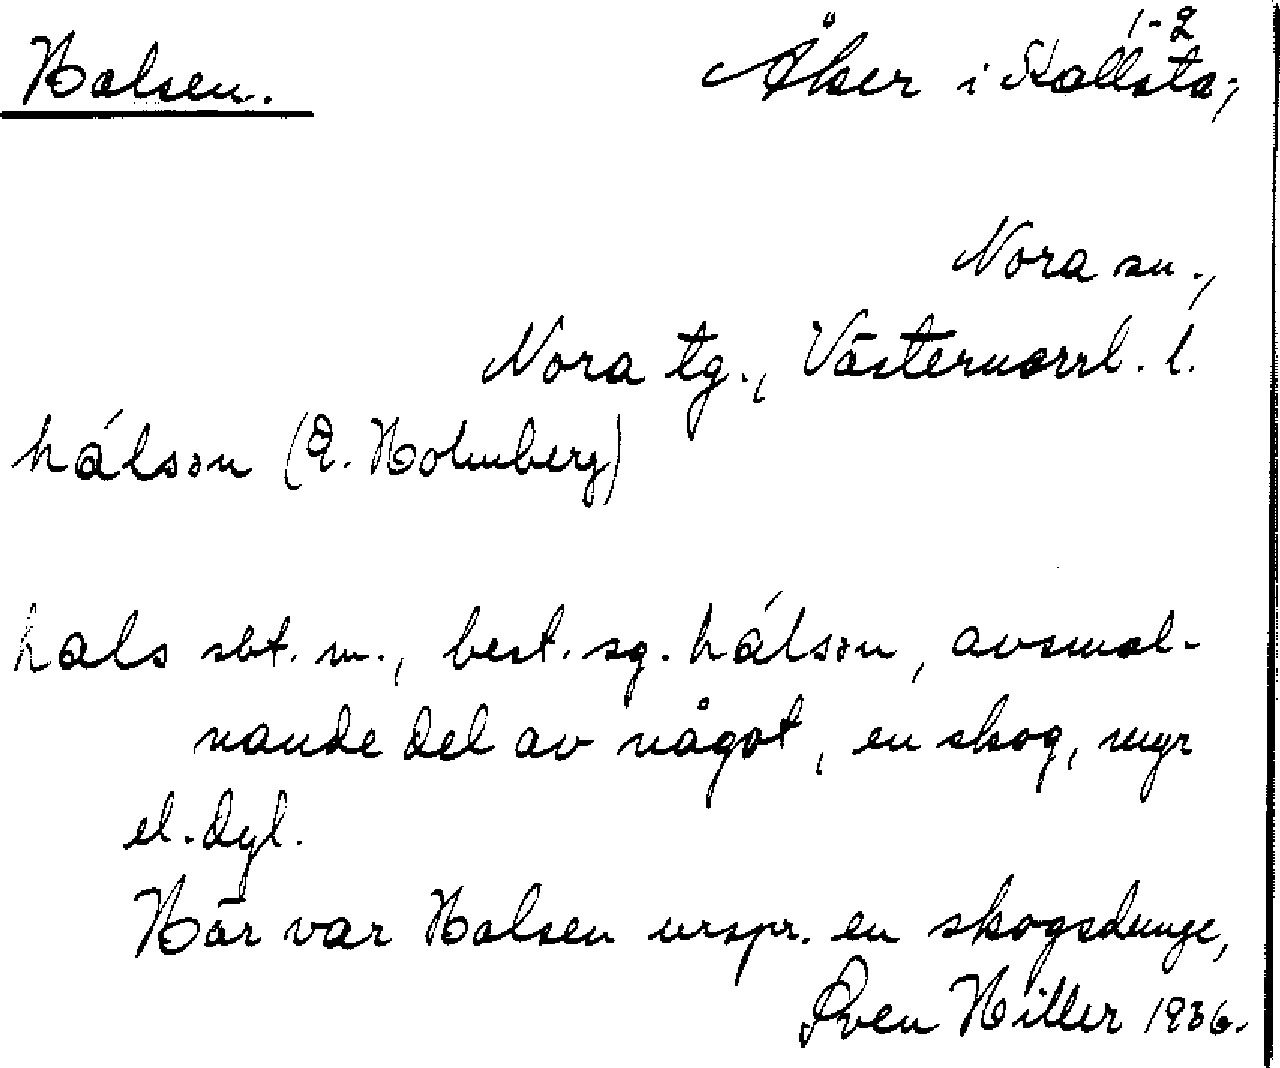 Halsen. Åker i Skallsta 1-2,
Nora sn.,
Nora tg., Västernorrl. l.
hálsɘn (E. Holmberg)
hals sbt. m., best. sg. hálsɘn, avsmal-
nande del av något, en skog, myr
el. dyl.
Här var Halsen urspr. en skogsdunge,
Sven Hiller 1936.